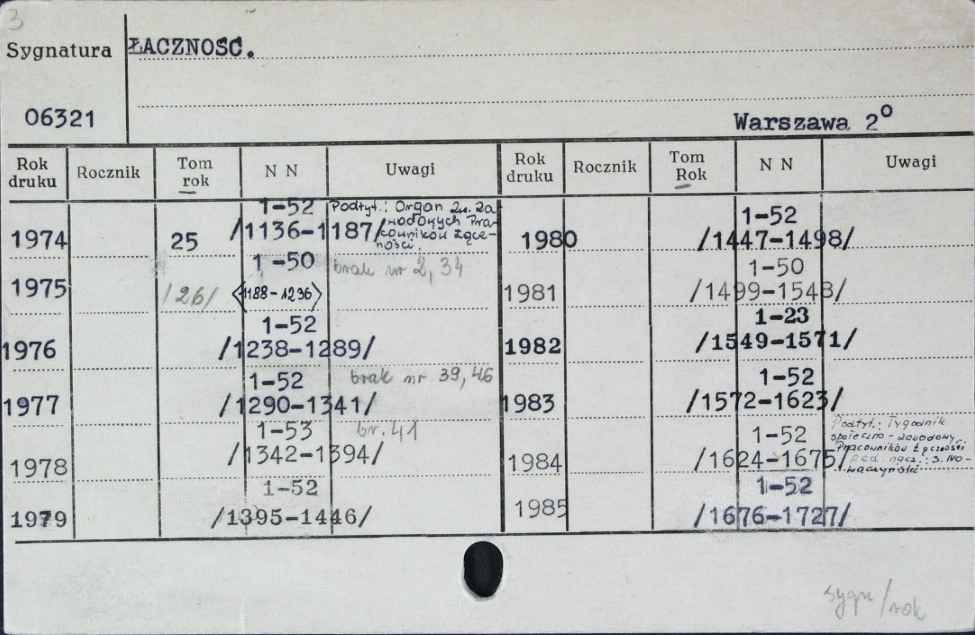 3
Sygnatura ŁACZNOSĆ.
06321
Warszawa 2°
Rok druku Rocznik Tom rok N N Uwagi Rok druku Rocznik Tom Rok N N Uwagi
1974 25 1-52 /1136-1187/
Podtyt.: Organ Zw. Za
wodowych Pra-
cowników Łącz-
ności.
1975 /26/ 1-50 <1188-1236> brak nr 2, 34
1976 1-52 /1238-1289/
1977 1-52 /1290-1341/ brak nr 39, 46
1978 1-53 /1342-1394/ br. 41
1979 1-52 /1395-1446/
1980 1-52 /1447-1498/
1981 1-50 /1499-1548/
1982 1-23 /1549-1571/
1983 1-52 /1572-1623/
1984 1-52 /1624-1675/
Podtyt.: Tygodnik
społeczno-zawodowy
Pracowników Łączności
red. nacz.: S.
1985 1-52 /1676-1727/
sygn/rok